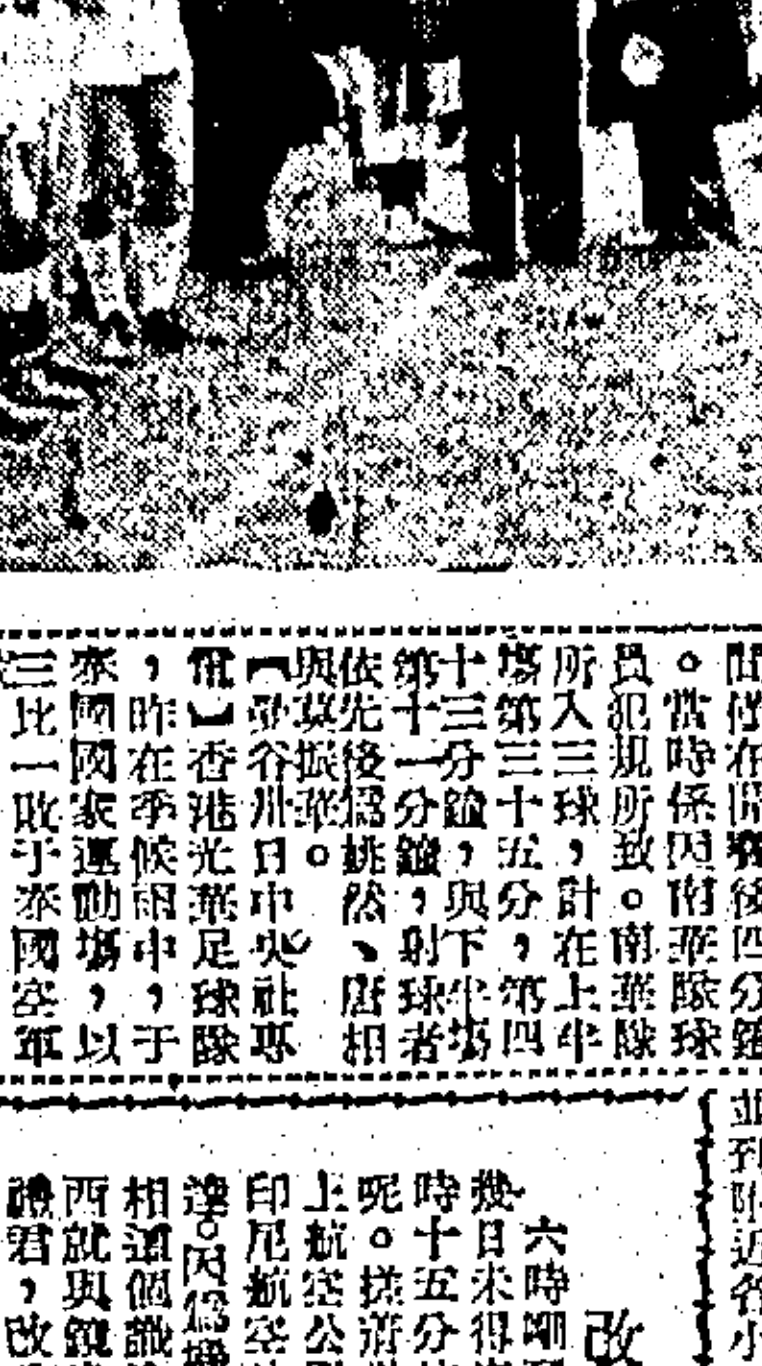 間僅在開賽後四分鐘
。當時係因南華隊球
員犯規所致。南華隊
所入三球，計在上半
塲第三十五分，第四
十三分鐘，與下半塲
第十一分鐘，射球者
依先後爲姚然、唐相
與莫振華。
【曼谷卅日中央社專
電】香港光華足球隊
，昨在季候雨中，于
泰國國家運動塲，以
三比一敗于泰國空軍
並到附近各小
改
六時
幾日未得
時十五分
呢。搭
上航空公
印尼航空
達。因爲
相道個
西就與
禮君，改